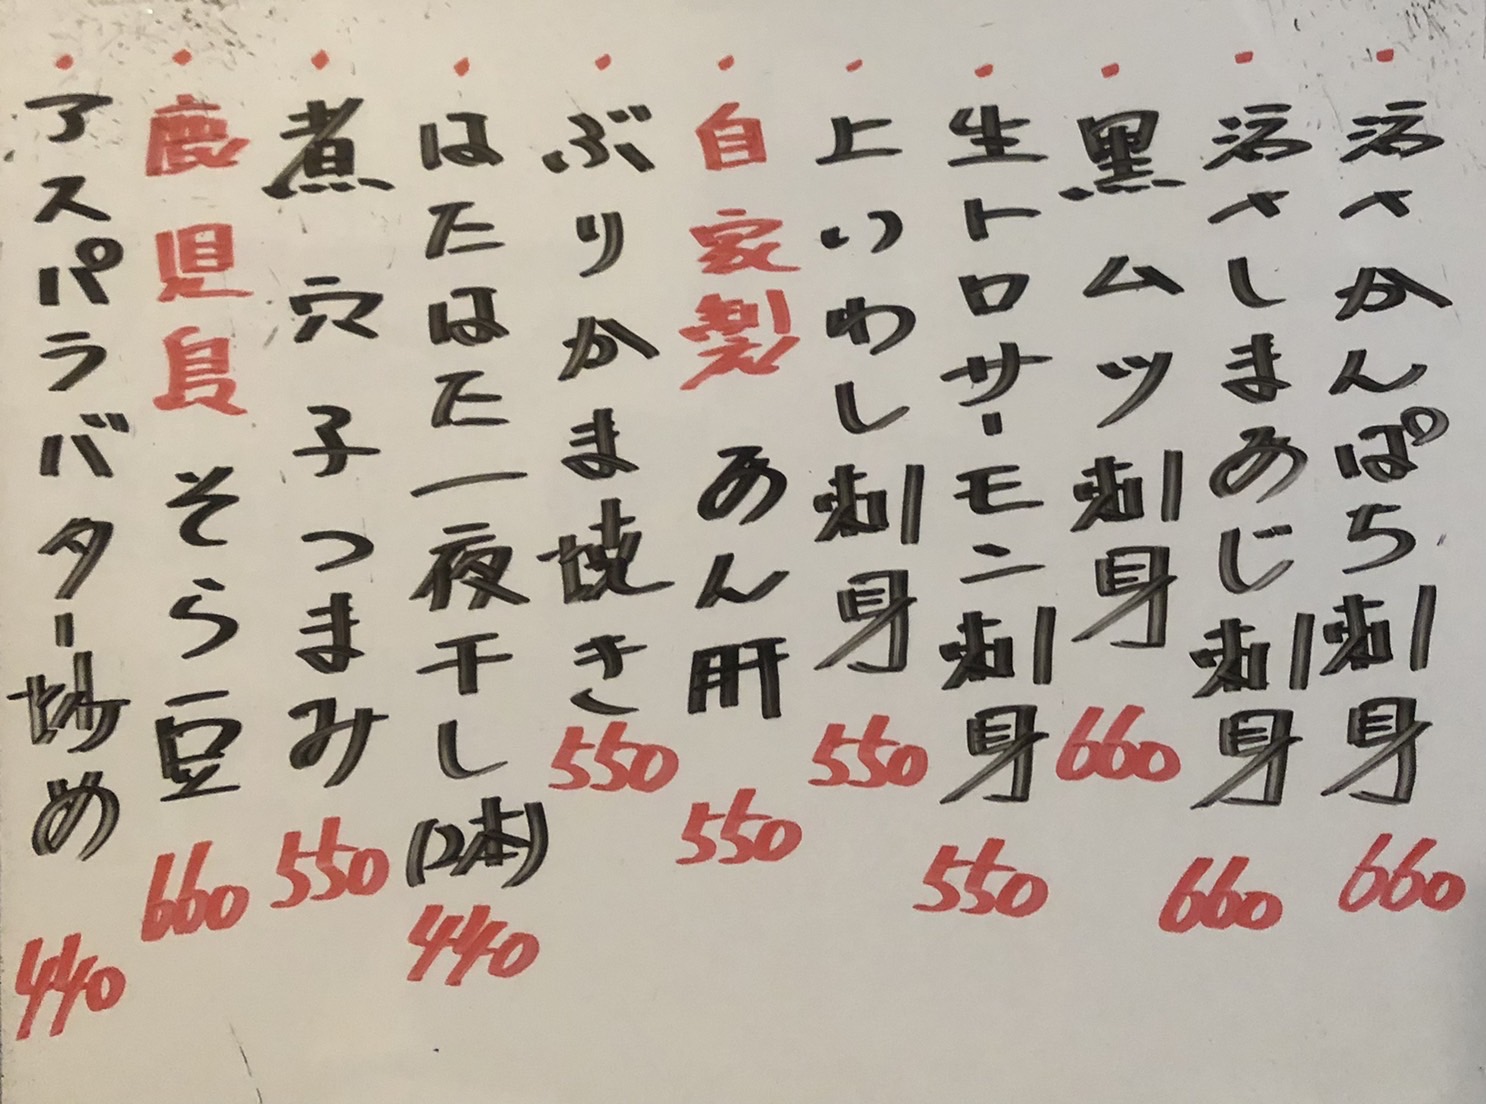 ・活〆かんぱち刺身 660
・活〆しまあじ刺身 660
・黒ムツ刺身 660
・生トロサーモン刺身 550
・上いわし刺身 550
・自家製あん肝 550
・ぶりかま焼き 550
・はたはた一夜干し(2本) 440
・煮穴子つまみ 550
・鹿児島そら豆 660
・アスパラバター炒め 440